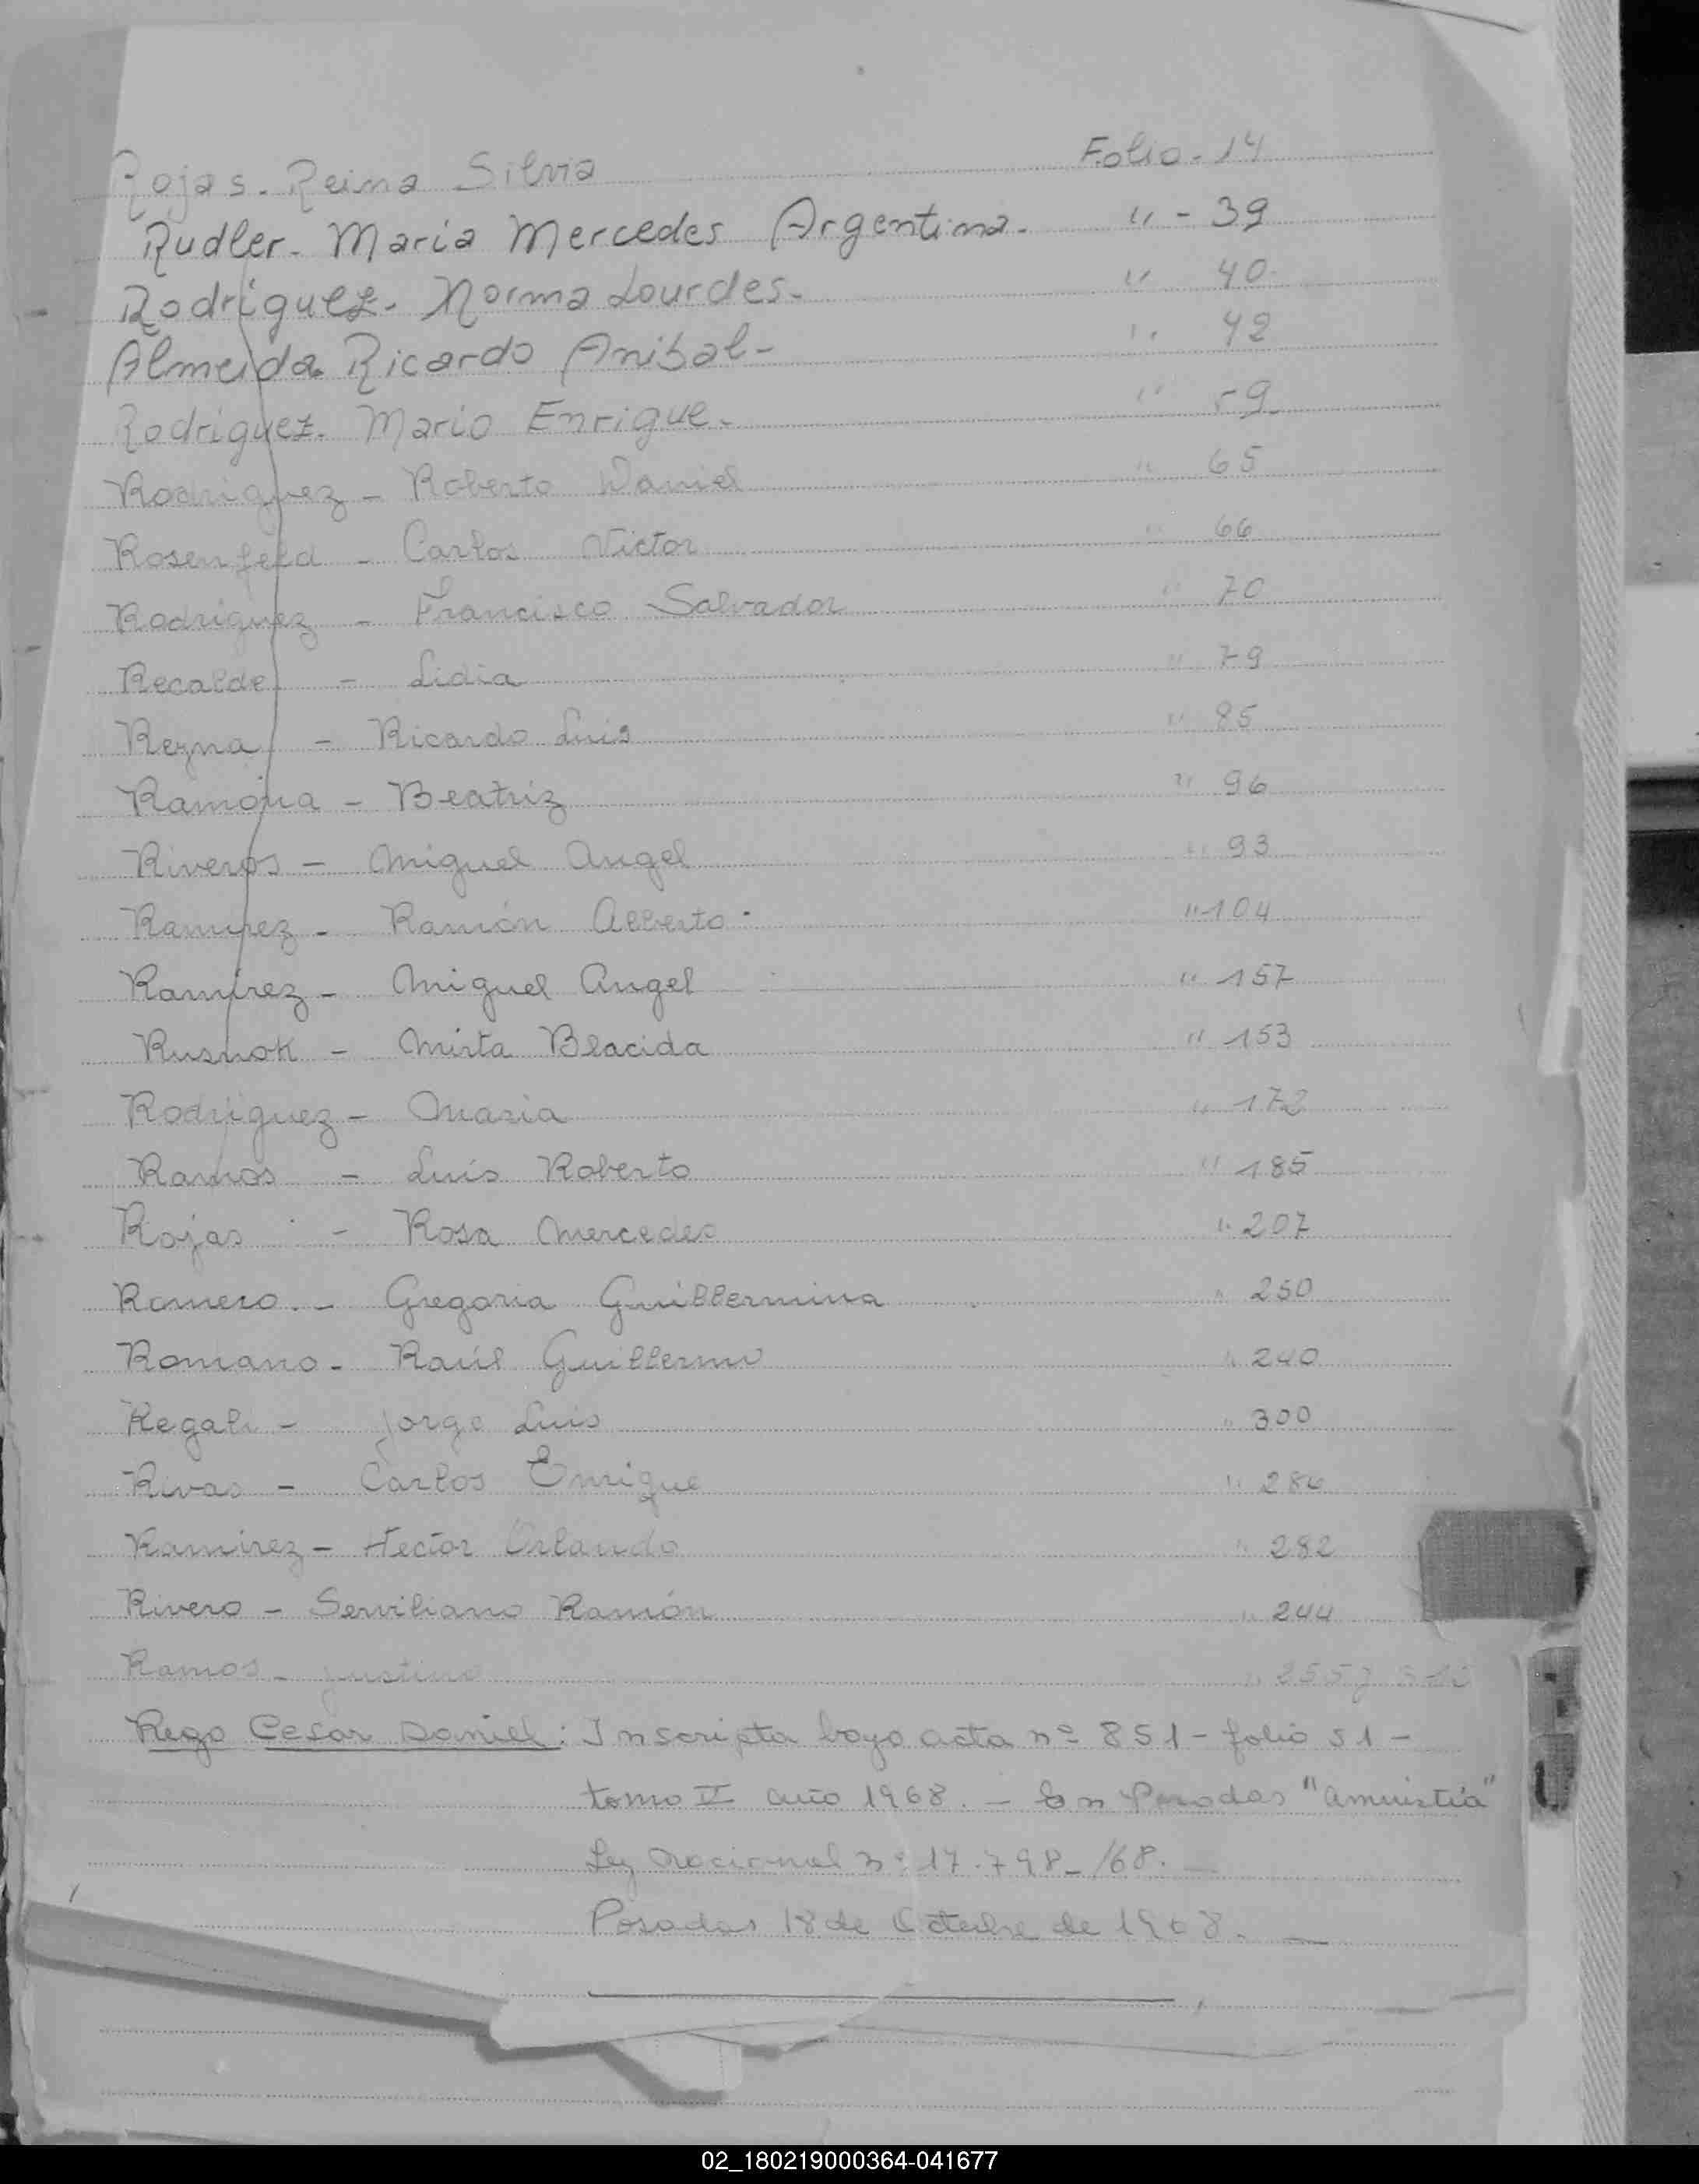 Rojas. Reina Silvia Folio - 14
Rudler. Maria Mercedes Argentina. " - 39
Rodriguez. Norma Lourdes. " 40
Almeida Ricardo Anibal - " 42
Rodriguez. Mario Enrique. " 59
Rodriguez - Roberto Daniel " 65
Rosenfeld - Carlos Victor " 66
Rodriguez - Francisco Salvador " 70
Recalde - Lidia " 79
Reyna - Ricardo Luis " 85
Ramona - Beatriz " 96
Riveros - Miguel Angel " 93
Ramirez - Ramón Alberto " 104
Ramirez - Miguel Angel " 157
Rusnok - Mirta Blacida " 153
Rodriguez - Maria " 172
Ramos - Luis Roberto " 185
Rojas - Rosa Mercedes " 207
Romero. - Gregoria Guillermina " 250
Romano - Raúl Guillermo " 240
Regali - Jorge Luis " 300
Rivas - Carlos Enrique " 286
Ramirez - Hector Orlando " 282
Rivero - Serviliano Ramón " 244
Ramos - Justino "
Rego Cesar Daniel: Inscripta bayo acta nº 851 - folio 51 -
tomo II año 1968. - En Posadas "Amnistia"
Ley Nacional nº 17.798 - /68.
Posadas 18 de Octubre de 1968.
02_180219000364-041677